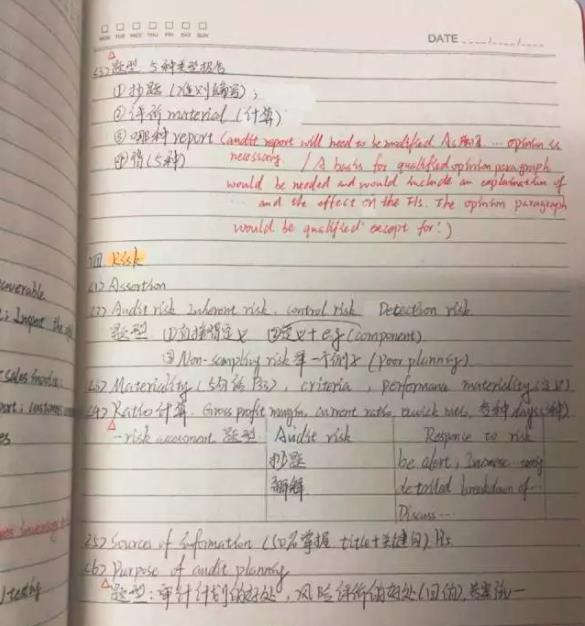 MON TUE WED THU FRI SAT SUN
DATE
(3) 题型 5种类型报告
① 抄题（准则编写）；
② 评价material（计算）
③ 哪种report (audit report will need to be modified As ... opinion is
necessary / A basis for qualified opinion paragraph
④ 背（5种）
would be needed and would include an explanation of
... and the effect on the FIs. The opinion paragraph
would be qualified 'except for'.)
Risk
(1) Assertion
(2) Audit risk Inherent risk. control risk Detection risk
题型 ①直接背定义 ②定义+eg (component)
③ Non-sampling risk 举一个例子 (poor planning)
(3) Materiality , criteria , performance materiality (定义)
(4) Ratio计算. Gross profit margin, current ratio, quick ratio, 各种days
risk assessment 题型 Audit risk Response to risk
抄题 be alert; Increase
解释 detailed breakdown of ...
Discuss ...
(5) Sources of information (掌握 title+关键句)
(6) Purpose of audit planning
题型：审计计划的好处，风险评价的好处 答案统一
overable
sales
port: customer
es
testing